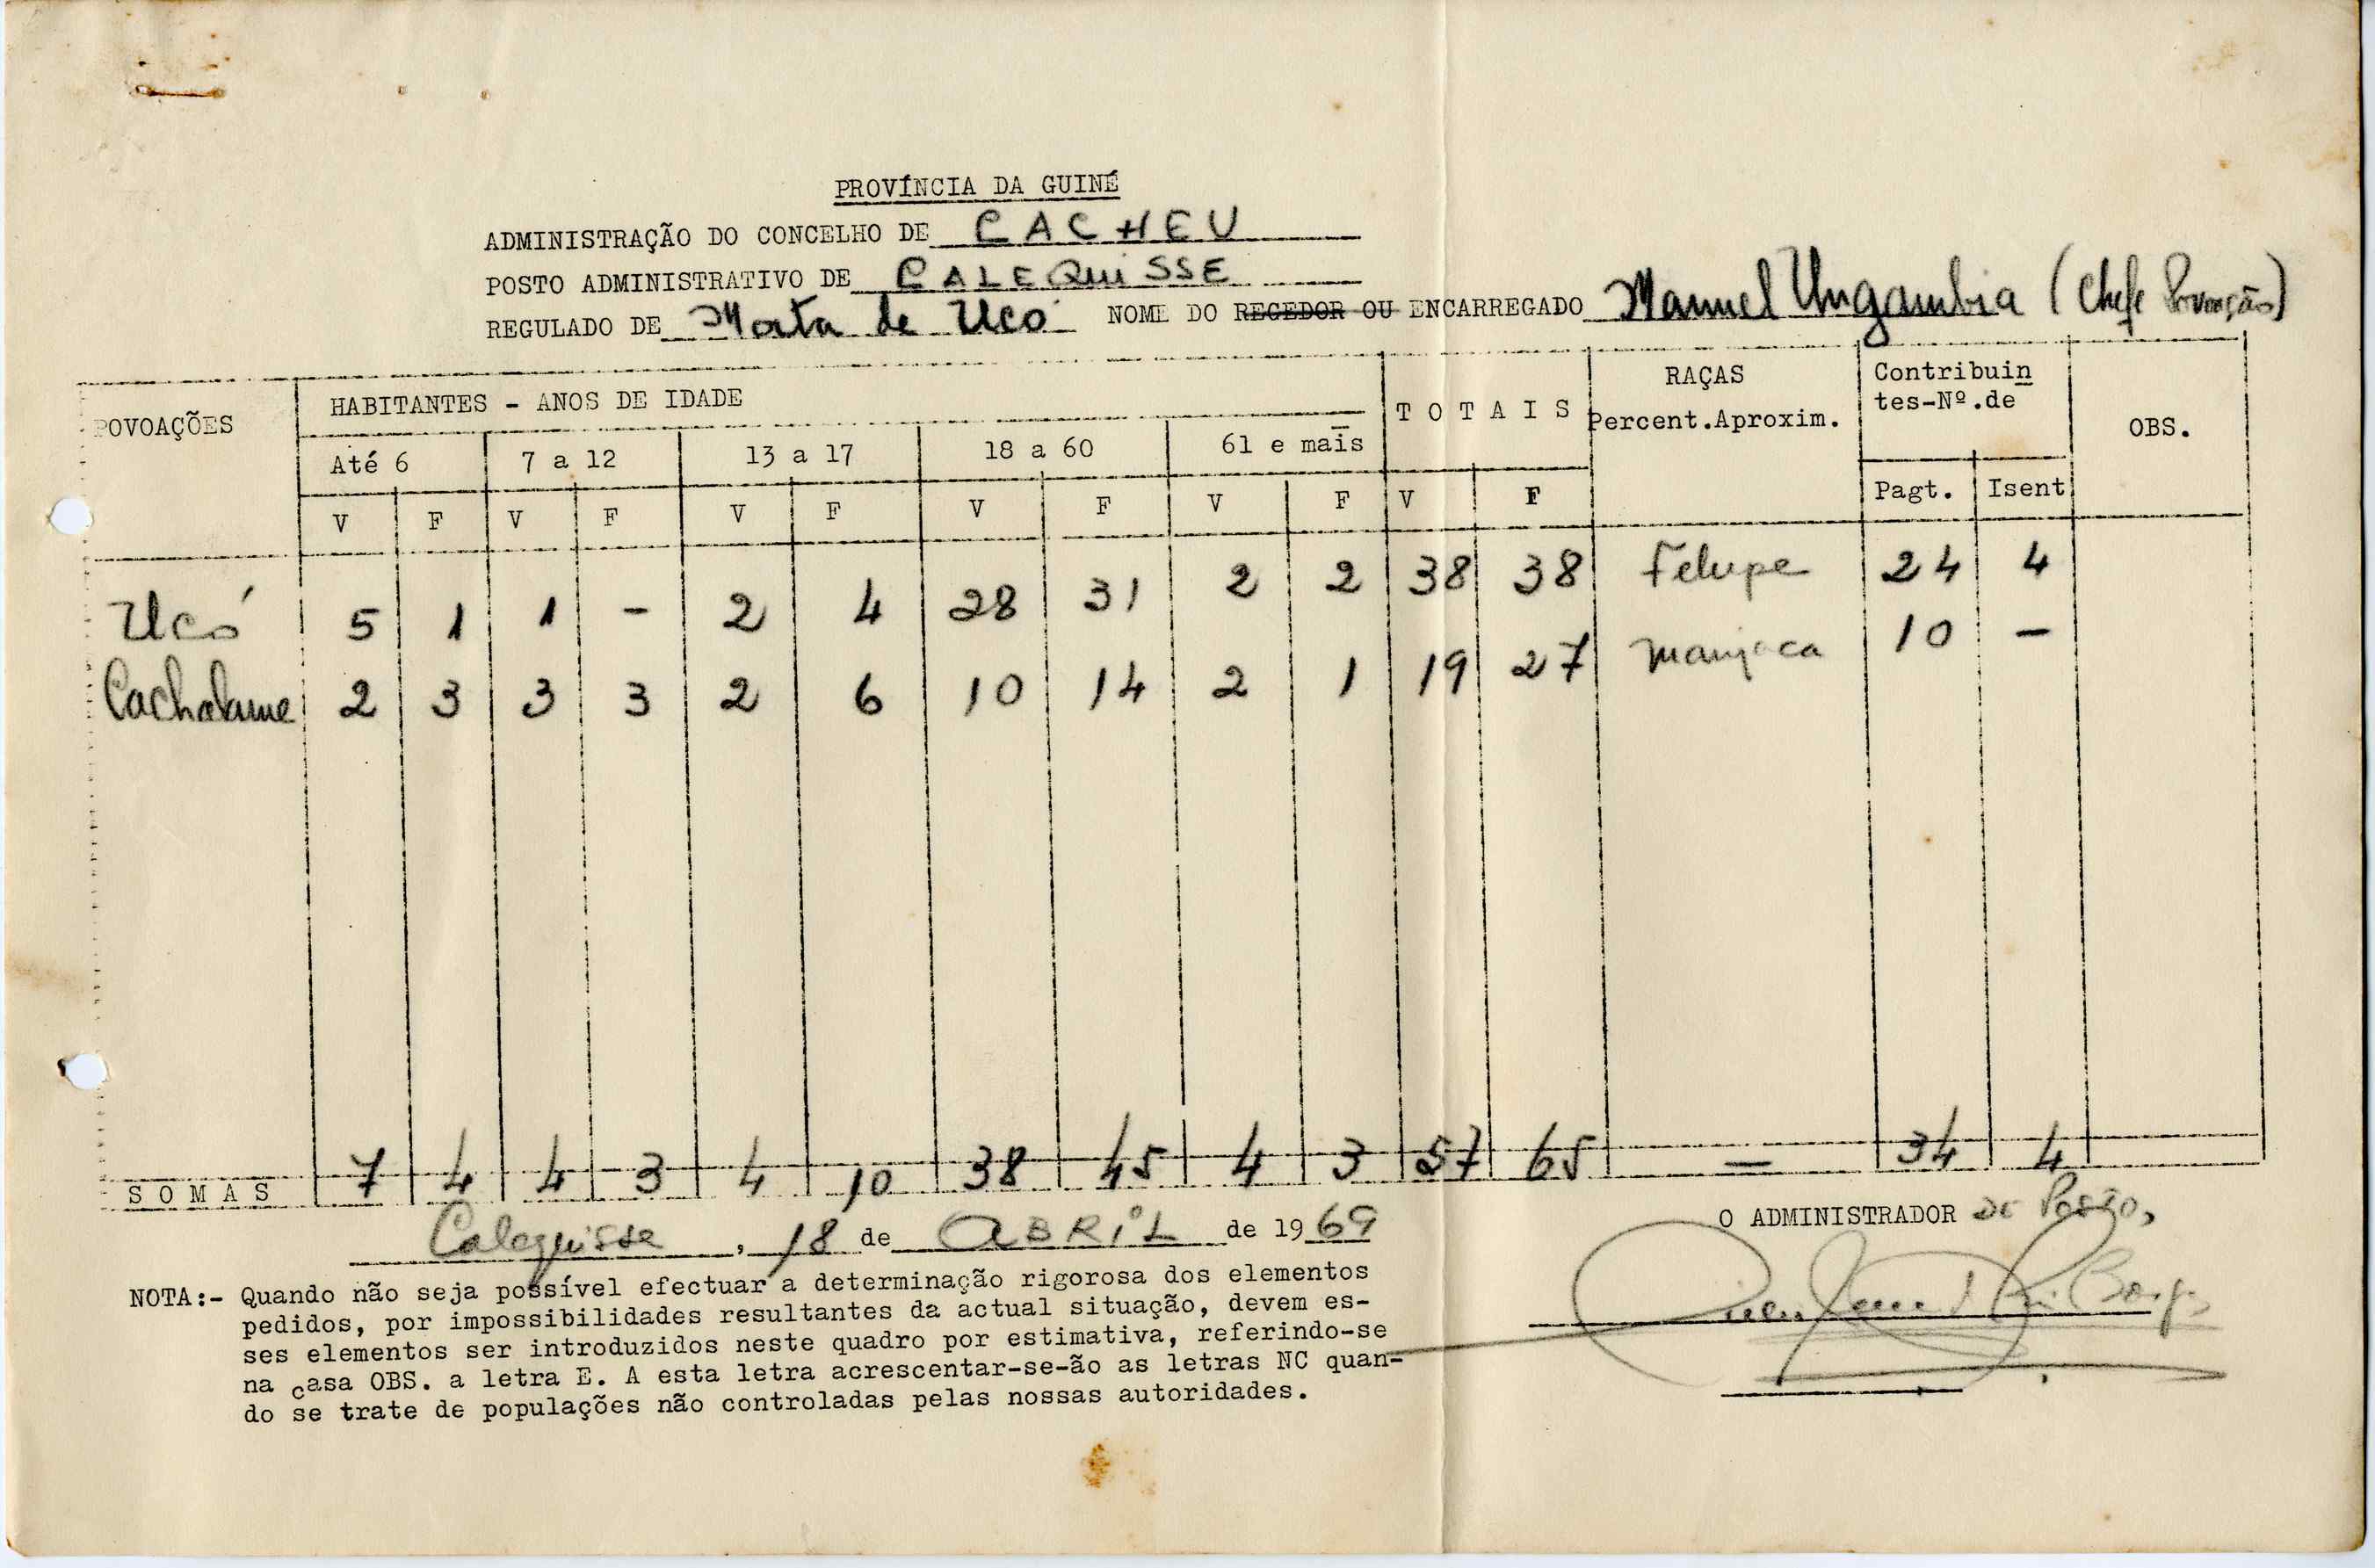 PROVÍNCIA DA GUINÉ
ADMINISTRAÇÃO DO CONCELHO DE CACHEU
POSTO ADMINISTRATIVO DE CALEQUISSE
REGULADO DE Mata de Ucó NOME DO REGEDOR OU ENCARREGADO Manuel Ungambia (Chefe Povoação)
POVOAÇÕES HABITANTES - ANOS DE IDADE T O T A I S RAÇAS Percent.Aproxim. Contribuin
tes-Nº.de OBS.
Até 6 7 a 12 13 a 17 18 a 60 61 e mais
V F V F V F V F V F V F Pagt. Isent
Ucó 5 1 1 - 2 4 28 31 2 2 38 38 Felupe 24 4
Cachalame 2 3 3 3 2 6 10 14 2 1 19 27 Manjaca 10 -
S O M A S 7 4 4 3 4 10 38 45 4 3 57 65 - 34 4
Calequisse, 18 de ABRIL de 1969
O ADMINISTRADOR DE Posto,
NOTA:- Quando não seja possível efectuar a determinação rigorosa dos elementos
pedidos, por impossibilidades resultantes da actual situação, devem es-
ses elementos ser introduzidos neste quadro por estimativa, referindo-se
na casa OBS. a letra E. A esta letra acrescentar-se-ão as letras NC quan-
do se trate de populações não controladas pelas nossas autoridades.